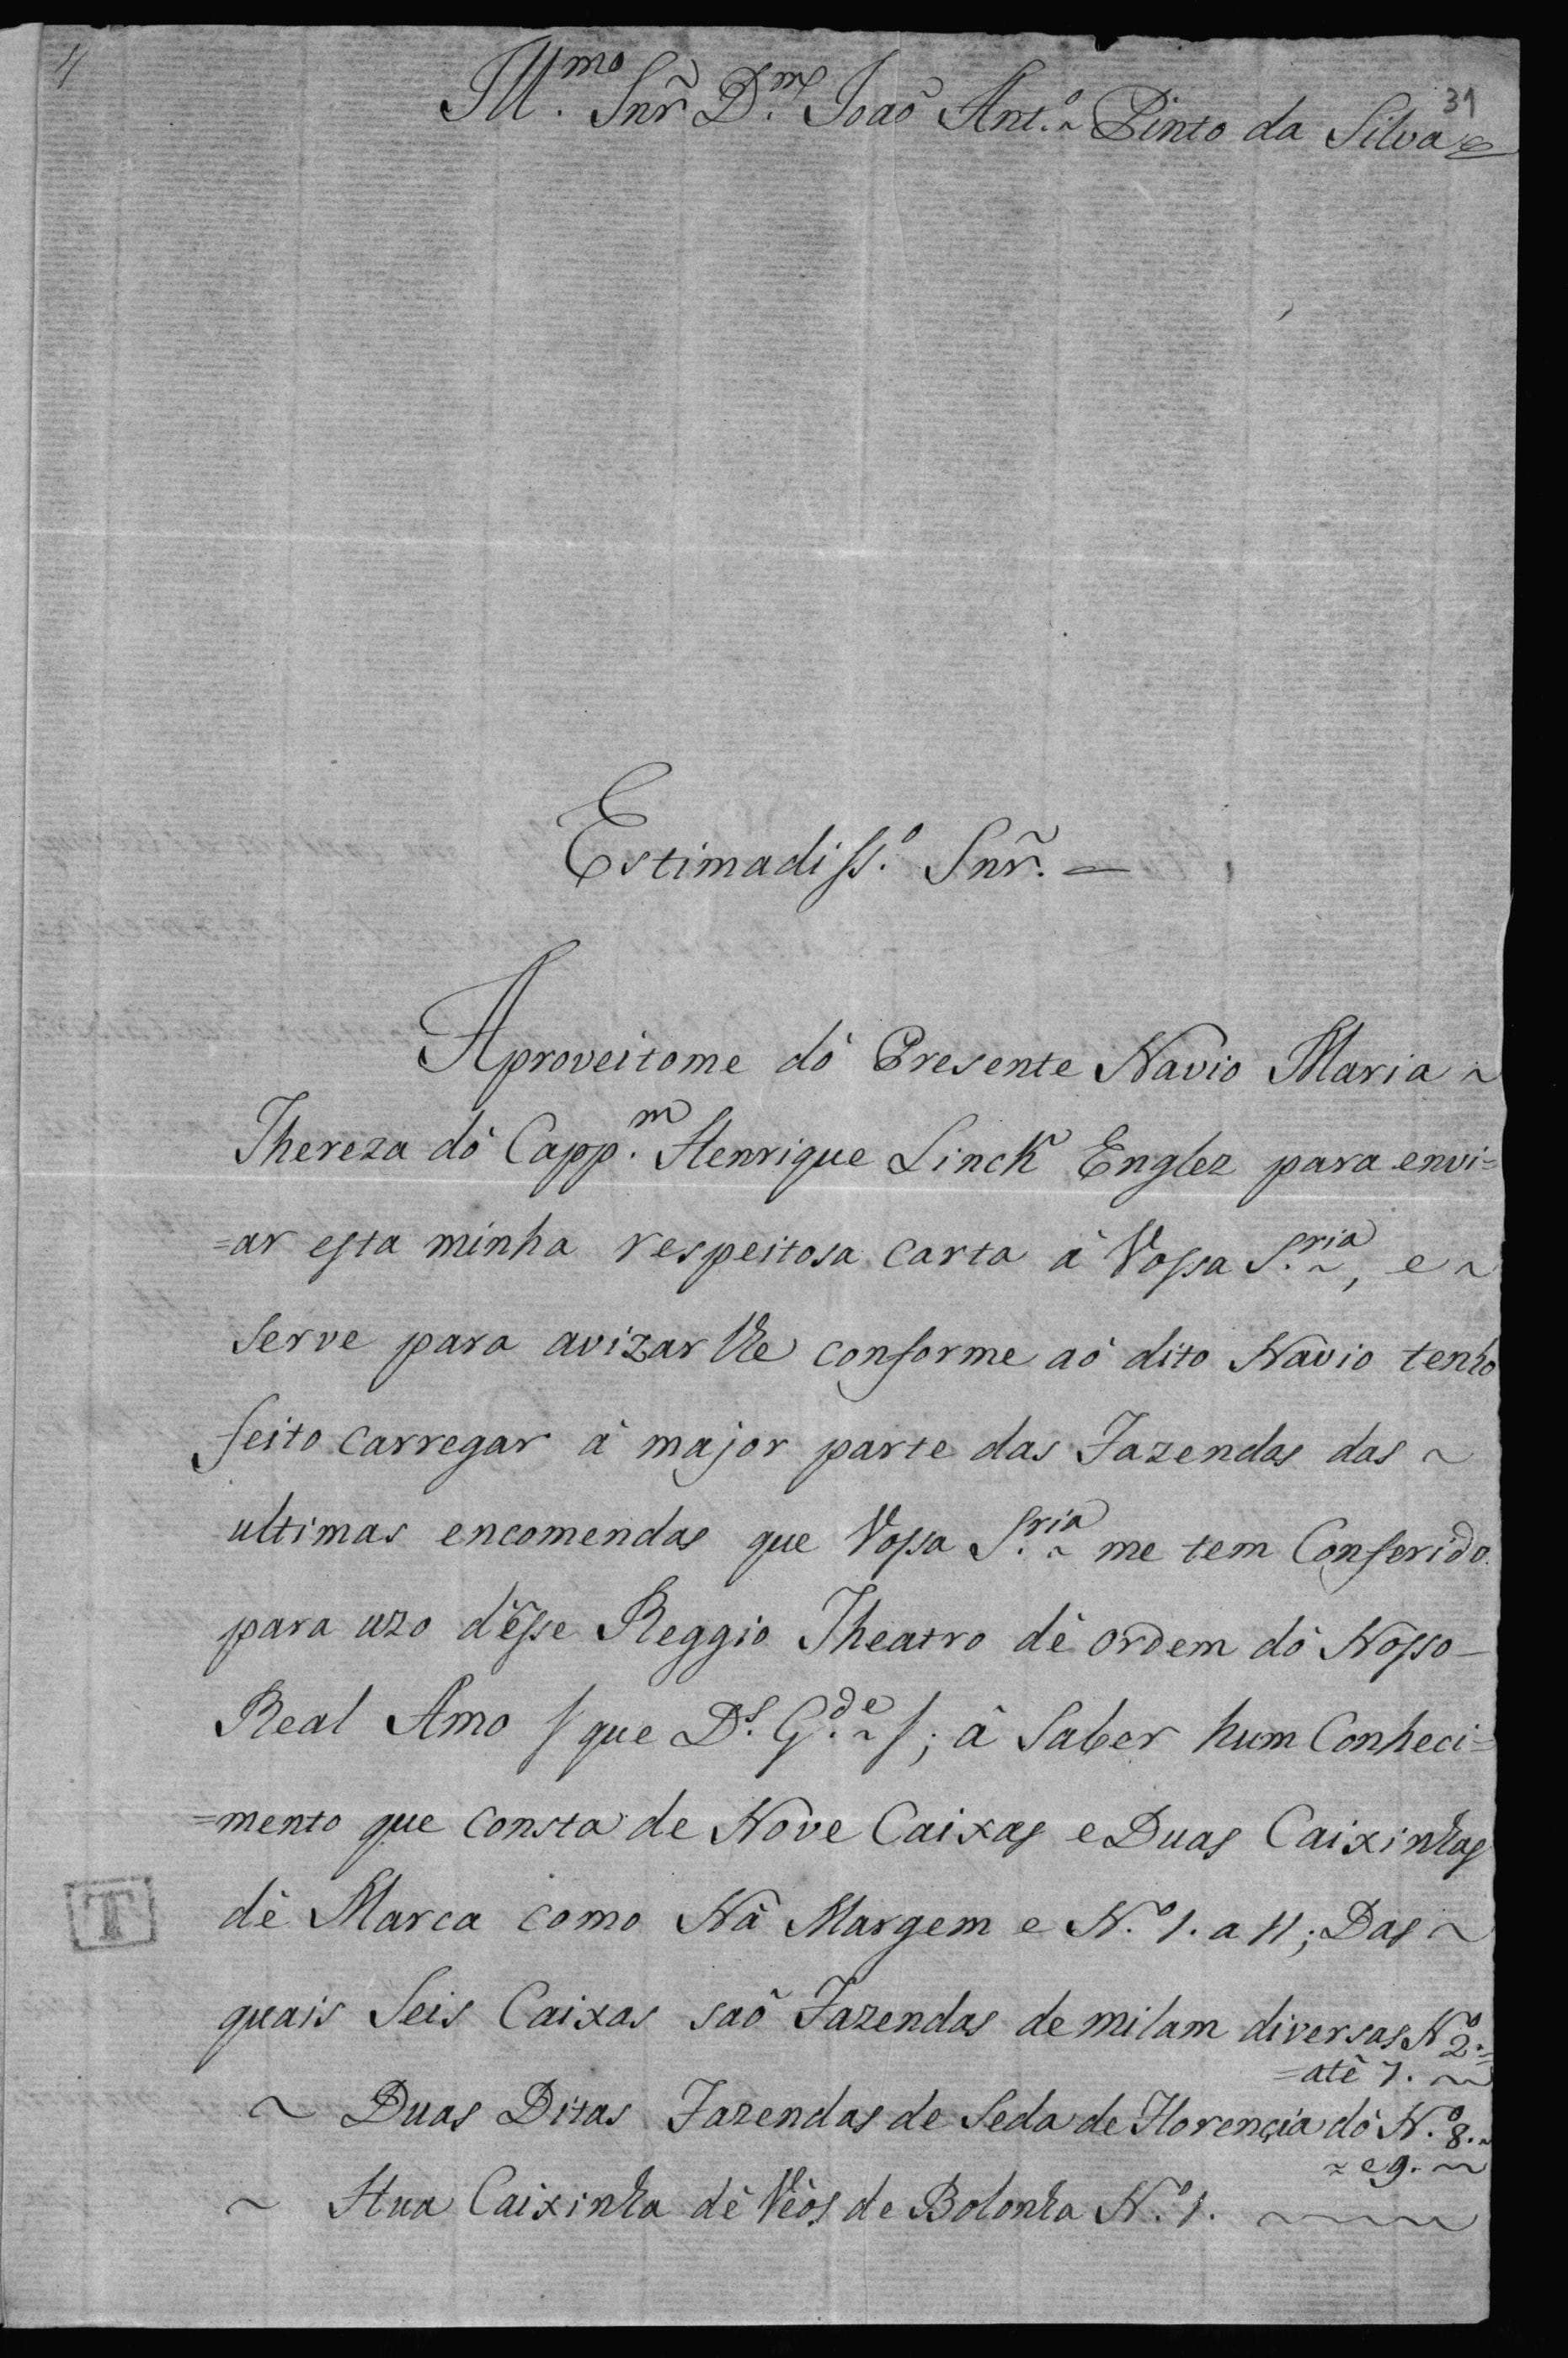 4
31
Ill.mo Snr̃ D.m Joaõ Ant.o ~ Pinto da Silva
Estimadiss.o Snr̃. =
Aproveitome dò Presente Navio Maria ~
Thereza dò Capp.m Henrique Linck Englez para envi=
=ar esta minha respeitosa carta à Vossa S.ria ~, e ~
serve para avizar lhe conforme aò dito Navio tenho
feito carregar à major parte das Fazendas das ~
ultimas encomendas que Vossa S.ria ~ me tem Conferido
para uzo d'êsse Reggio Theatro dè ordem dò Nosso –
Real Amo / que D.s G.de ~ /; â saber hum Conheci=
=mento que consta de Nove Caixas e Duas Caixinhas
T
dè Marca como Nâ Margem e N.o 1. a 11; Das ~
quais Seis Caixas saõ Fazendas de milam diversas N.o 2. =
=atê 7. ~
~ Duas Ditas Fazendas de Seda de Florençia dò N.o 8. ~
~ e 9. ~
~ Hua Caixinha dè Vèos de Bolonha N.o 1. ~